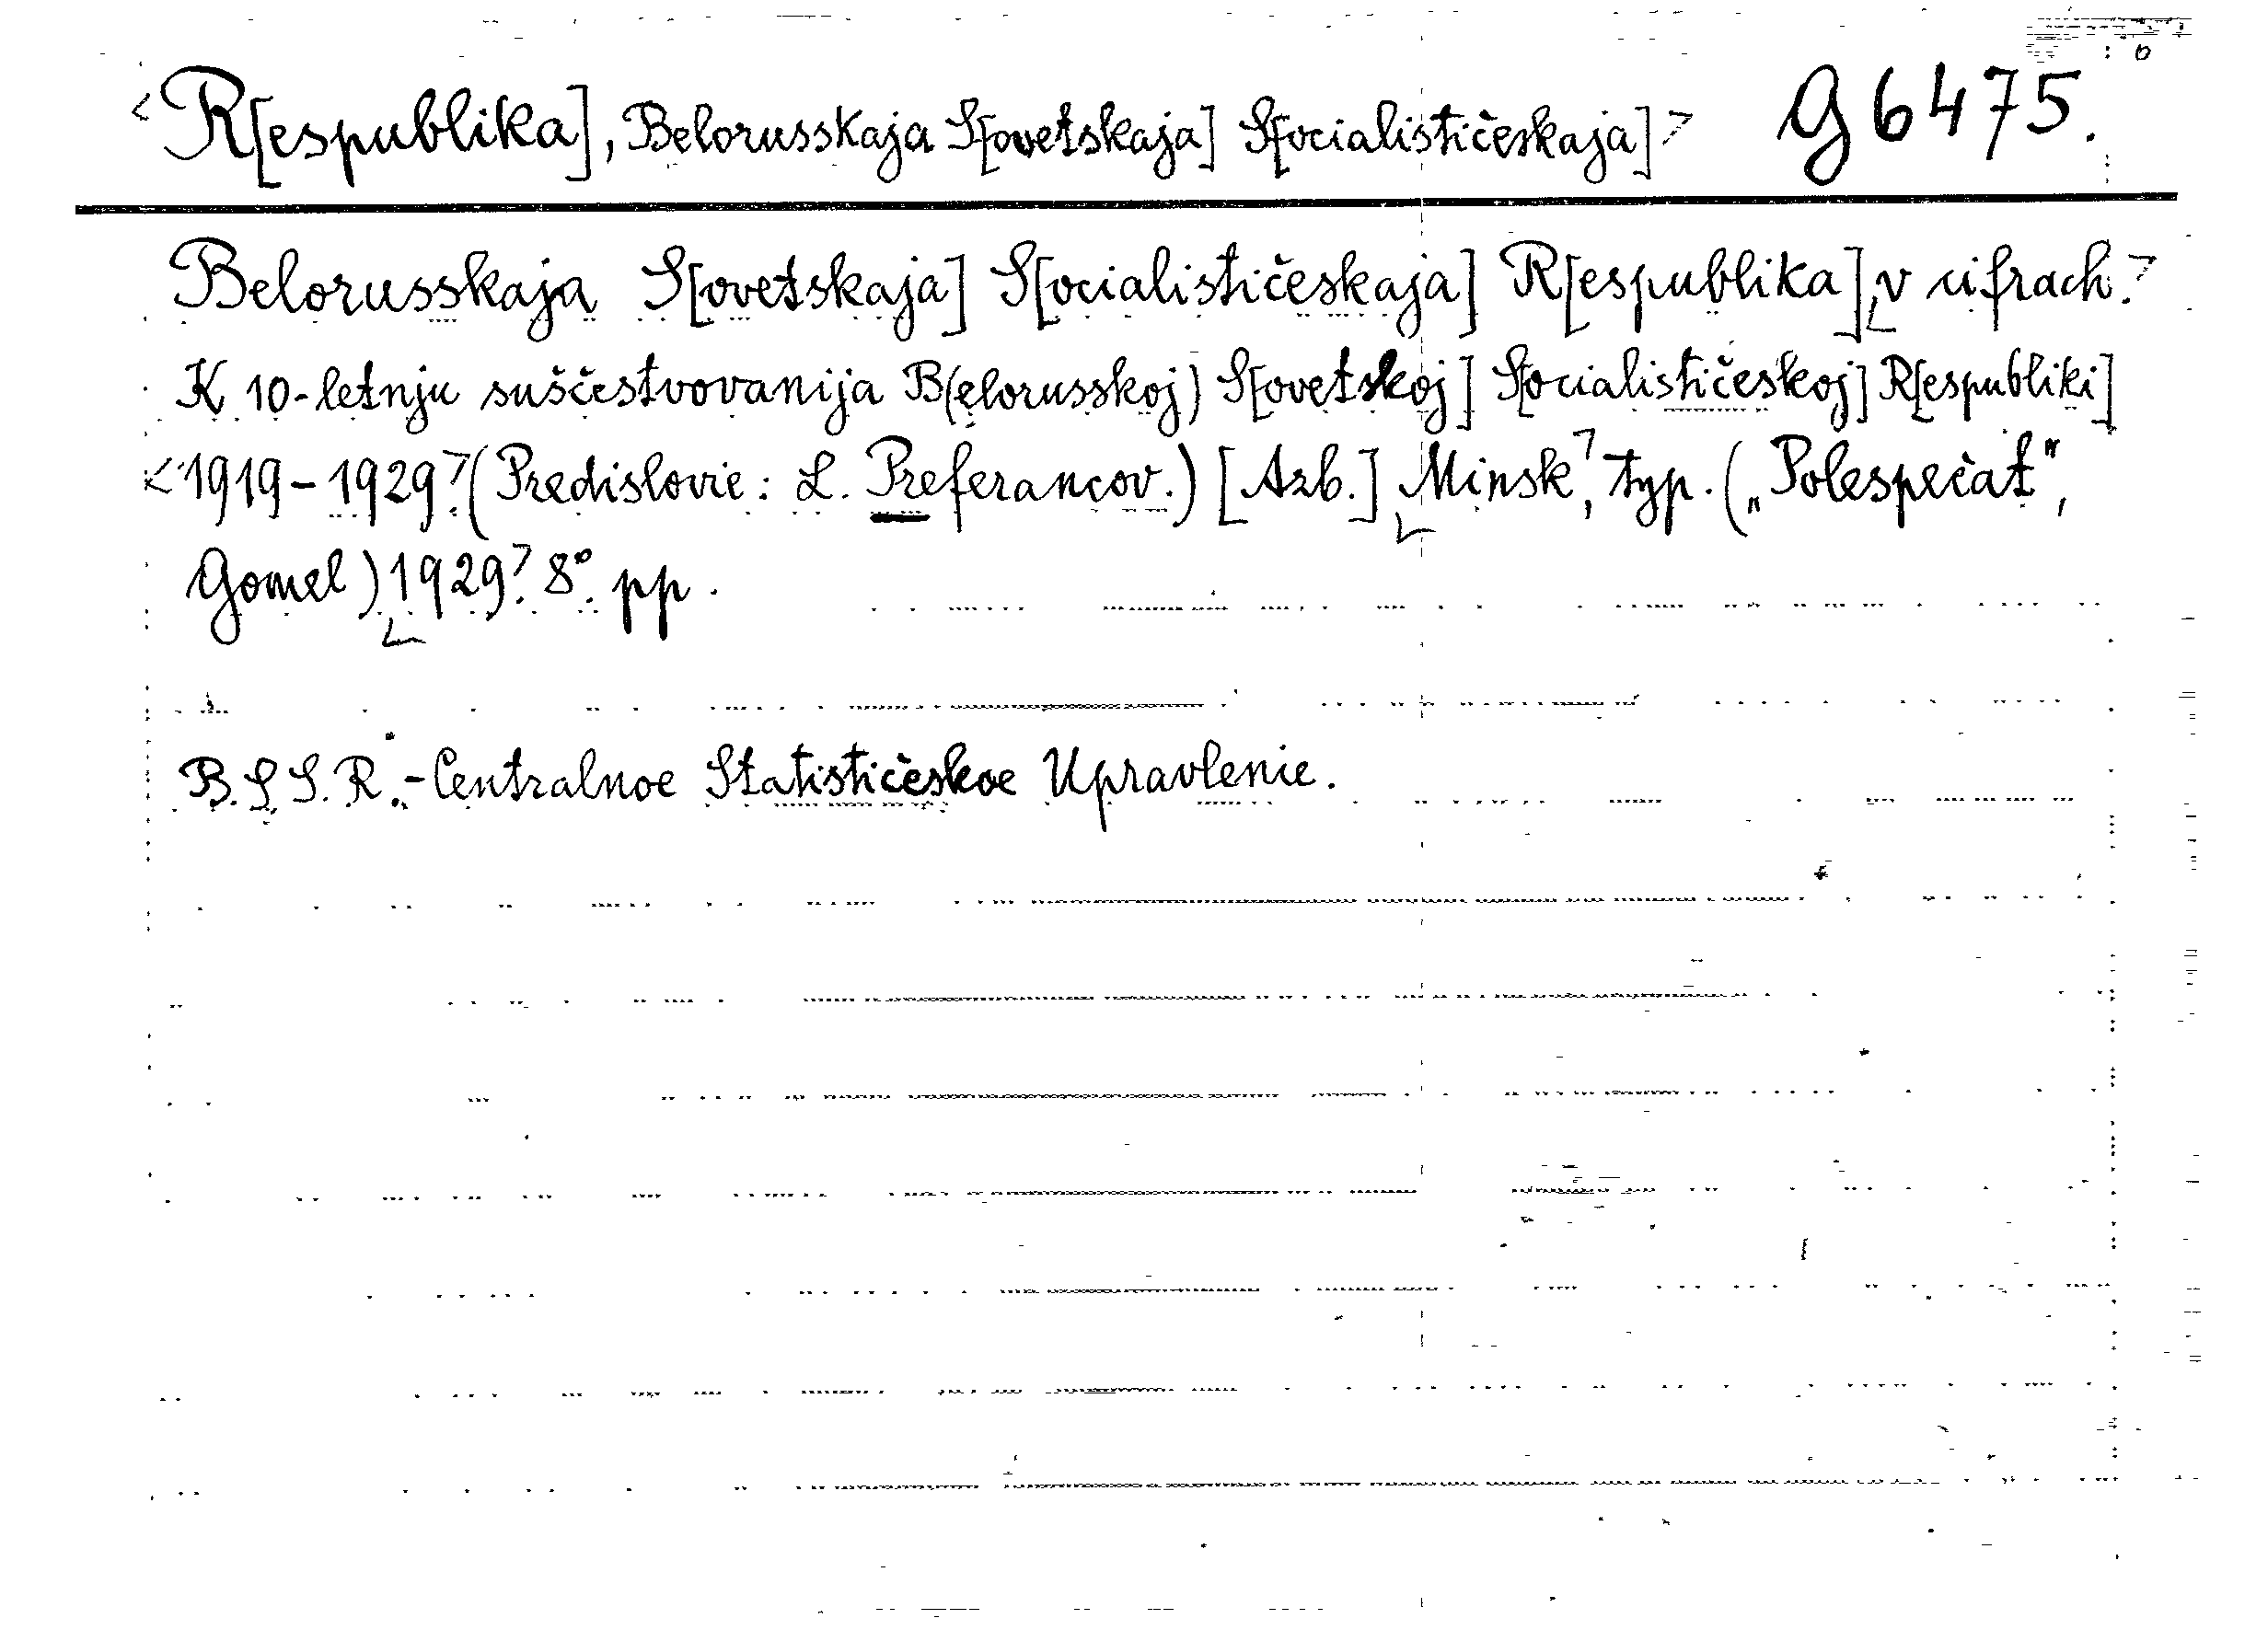 <R[espublika], Belorusskaja S[ovetskaja] S[ocialističeskaja]> G 6475.
Belorusskaja S[ovetskaja] S[ocialističeskaja] R[espublika] v cifrach.
K 10-letnju suščestvovanija B(elorusskoj) S[ovetskoj] S[ocialističeskoj] R[espubliki]
<1919-1929>. (Predislovie: L. Preferancov.) [Azb.] <Minsk>, typ. („Polespečat",
Gomel) <1929>. 8°. pp.
B.S.S.R.-Centralnoe Statističeskoe Upravlenie.